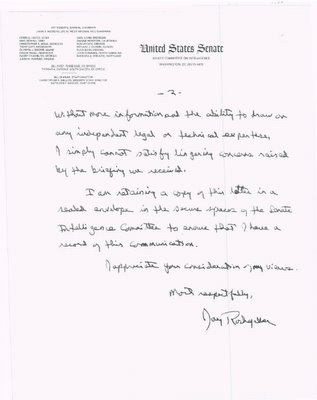 United States Senate
SELECT COMMITTEE ON INTELLIGENCE
WASHINGTON, DC 20510-6475
- 2 -
Without more information and the ability to draw on
any independent legal or technical expertise,
I simply cannot satisfy lingering concerns raised
by the briefing we received.
I am retaining a copy of this letter in a
sealed envelope in the secure spaces of the Senate
Intelligence Committee to ensure that I have a
record of this communication.
I appreciate your consideration of my views.
Most respectfully,
Jay Rockefeller